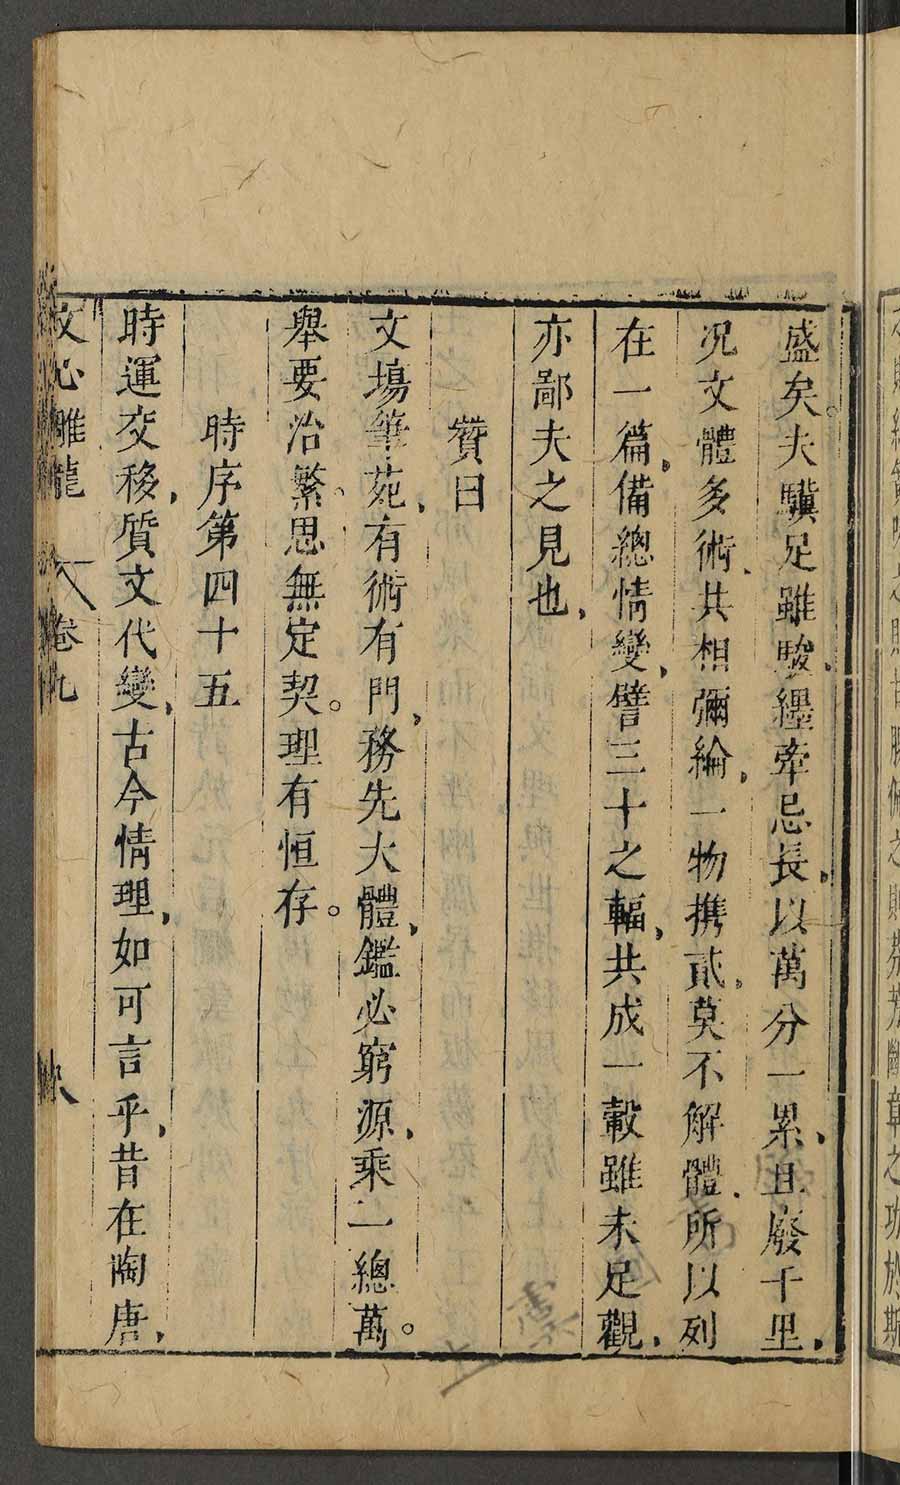 盛矣。夫驥足雖駿，纆牽忌長，以萬分一累，且廢千里，
况文體多術，共相彌綸，一物攜貳，莫不解體，所以列
在一篇，備總情變，譬三十之輻，共成一轂，雖未足觀，
亦鄙夫之見也，
贊曰
文場筆苑，有術有門，務先大體，鑑必窮源，乘一總萬。
舉要治繁、思無定契。理有恒存。
時序第四十五
時運交移，質文代變，古今情理，如可言乎，昔在陶唐，
文心雕龍 卷九